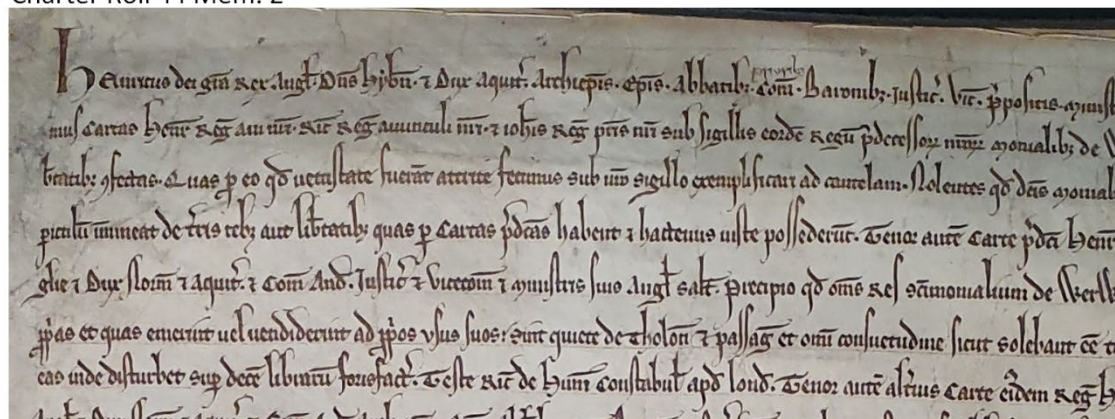 Charter Roll 44 Mem. 2
Henricus dei gr̃a Rex Angl̃ Dñs Hyb̃n ⁊ Dux Aquit̃. Archiep̃is. Ep̃is. Abbatib; prioribz Com̃. Baronib;. Justic̃. Vic̃. p̃positis. Minis
mus Cartas Henr̃ Reg̃ aui nr̃i. Ric̃ Reg̃ auunculi nr̃i. ⁊ Joh̃is Reg̃ pr̃is nr̃i sub sigillis eordẽ Regũ p̃decessoꝝ nr̃oꝝ Monialib; de W
b̃tatib; ꝯfectas. Quas ꝑ eo qd̃ uetustate fuerãt attrite fecimus sub nr̃o sigillo exemplificari ad cautelam. Nolentes qd̃ dc̃is Monial
ꝑiculũ immineat de t̃ris reb; aut lib̃tatib; quas ꝑ Cartas p̃dc̃as habent ⁊ hactenus iuste possederũt. Tenor autẽ Carte p̃dc̃i Henr̃
glie ⁊ Dux Norm̃ ⁊ Aquit̃. ⁊ Com̃ And̃. Justic̃ ⁊ Vicecom̃ ⁊ Ministris suis Angl̃ sal̃t. Precipio qd̃ om̃s Res sc̃imonialium de WerW
pp̃as et quas emerint uel uendiderint ad pp̃os vsus suos: sint quiete de Tholoñ ⁊ passag̃ et om̃i consuetudine sicut solebant eẽ t
eas inde disturbet sup̃ decẽ libraruũ forisfact̃. Teste Ric̃ de Hum̃ Constabul̃ apd̃ lond̃. Tenor autẽ alt̃ius Carte eĩdem Reg̃ H